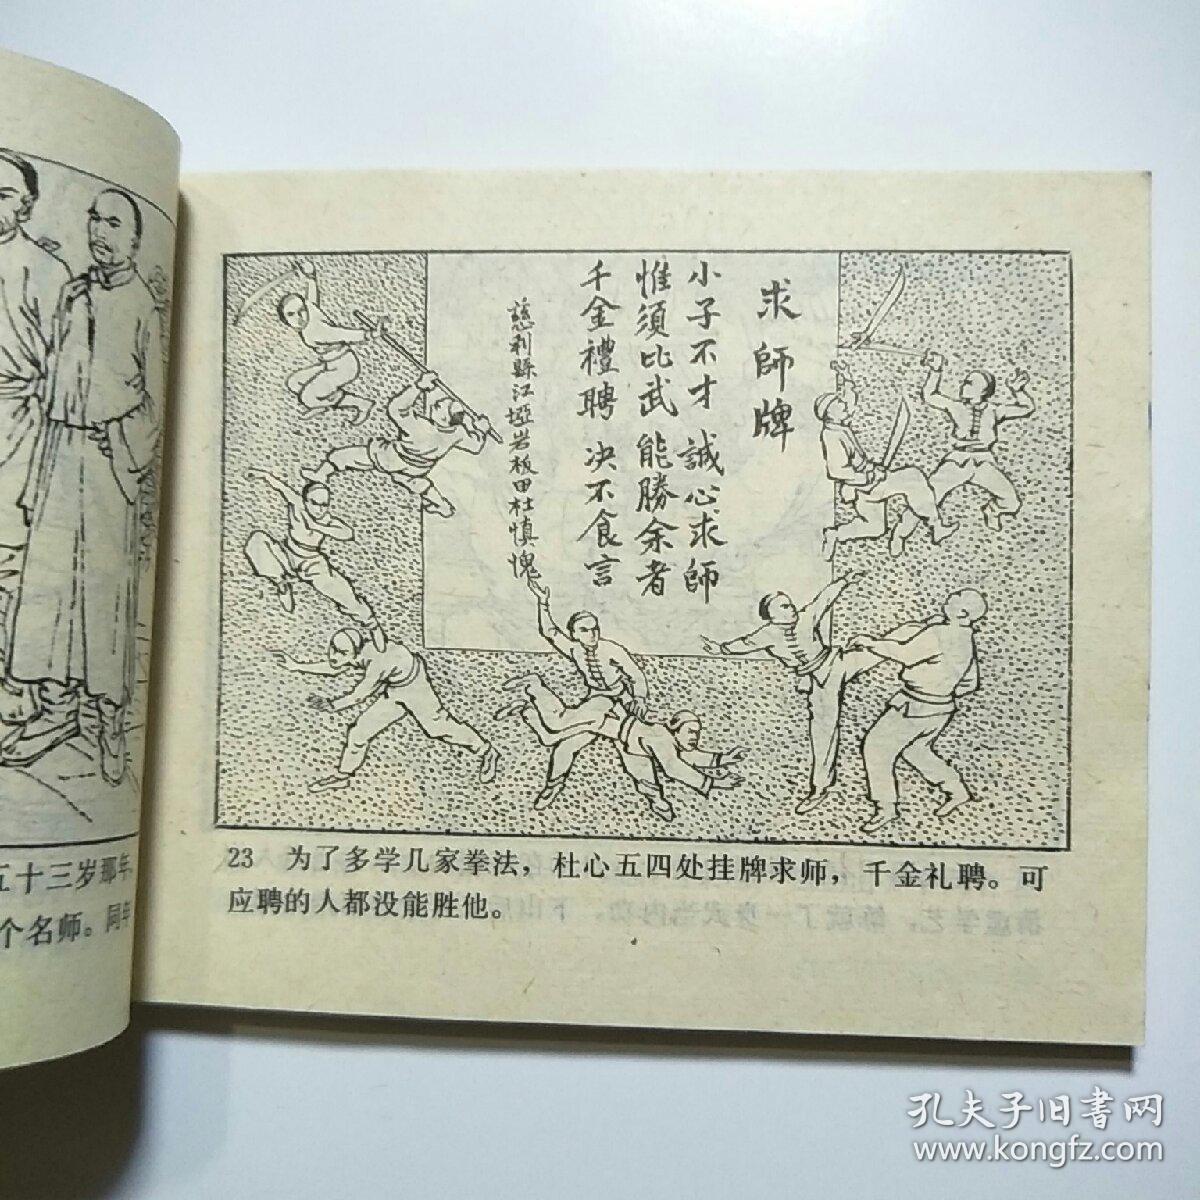 求師牌
小子不才 誠心求師
惟須比武 能勝余者
千金禮聘 决不食言
慈利縣江埡岩板田杜慎媿
五十三岁那年,
个名师。同年
23 为了多学几家拳法，杜心五四处挂牌求师，千金礼聘。可
应聘的人都没能胜他。
孔夫子旧书网
www.kongfz.com